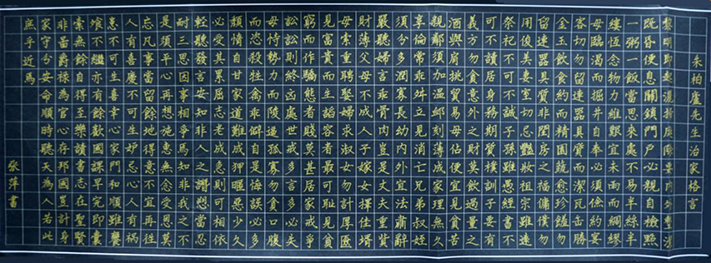 朱柏廬先生治家格言
黎明即起灑掃庭除要內外整潔
既昏便息關鎖門戶必親自檢點
一粥一飯當思來處不易半絲半
縷恆念物力維艱宜未雨而綢繆
毋臨渴而掘井自奉必須儉約宴
客切勿留連器具質而潔瓦缶勝
金玉飲食約而精園蔬愈珍饈勿
留連器具質非閨房之福僮僕勿
用俊美妻妾切忌艷妝祖宗雖遠
祭祀不可不誠子孫雖愚經書不
可不讀居身務期質樸訓子要有
義方勿貪意外之財莫飲過量之
酒與肩挑貿易毋佔便宜見貧苦
親鄰須加溫卹刻薄成家理無久
享倫常乖舛立見消亡兄弟叔姪
須分多潤寡長幼內外宜法肅辭
嚴聽婦言乖骨肉豈是丈夫重資
財薄父母不成人子嫁女擇佳婿
毋索重聘娶媳求淑女勿計厚奩
見富貴而生諂容者最可恥遇貧
窮而作驕態者賤莫甚居家戒爭
訟訟則終凶處世戒多言言必失
毋恃勢力而凌逼孤寡勿貪口腹
而恣殺牲禽乖僻自是悔誤必多
頹惰自甘家道難成狎暱惡少久
必受其累屈志老成急則可相依
輕聽發言安知非人之譖愬當忍
耐三思因事相爭焉知非我之不
是須平心再想施惠無念受恩莫
忘凡事當留餘地得意不宜再往
人有喜慶不可生妒忌心人有禍
患不可生喜幸心家門和順雖饔
飧不繼亦有餘歡國課早完即囊
橐無餘自得至樂讀書志在聖賢
非徒爵祿為官心存邦國豈計身
家守分安命順時聽天為人若此
庶乎近焉
張萍書